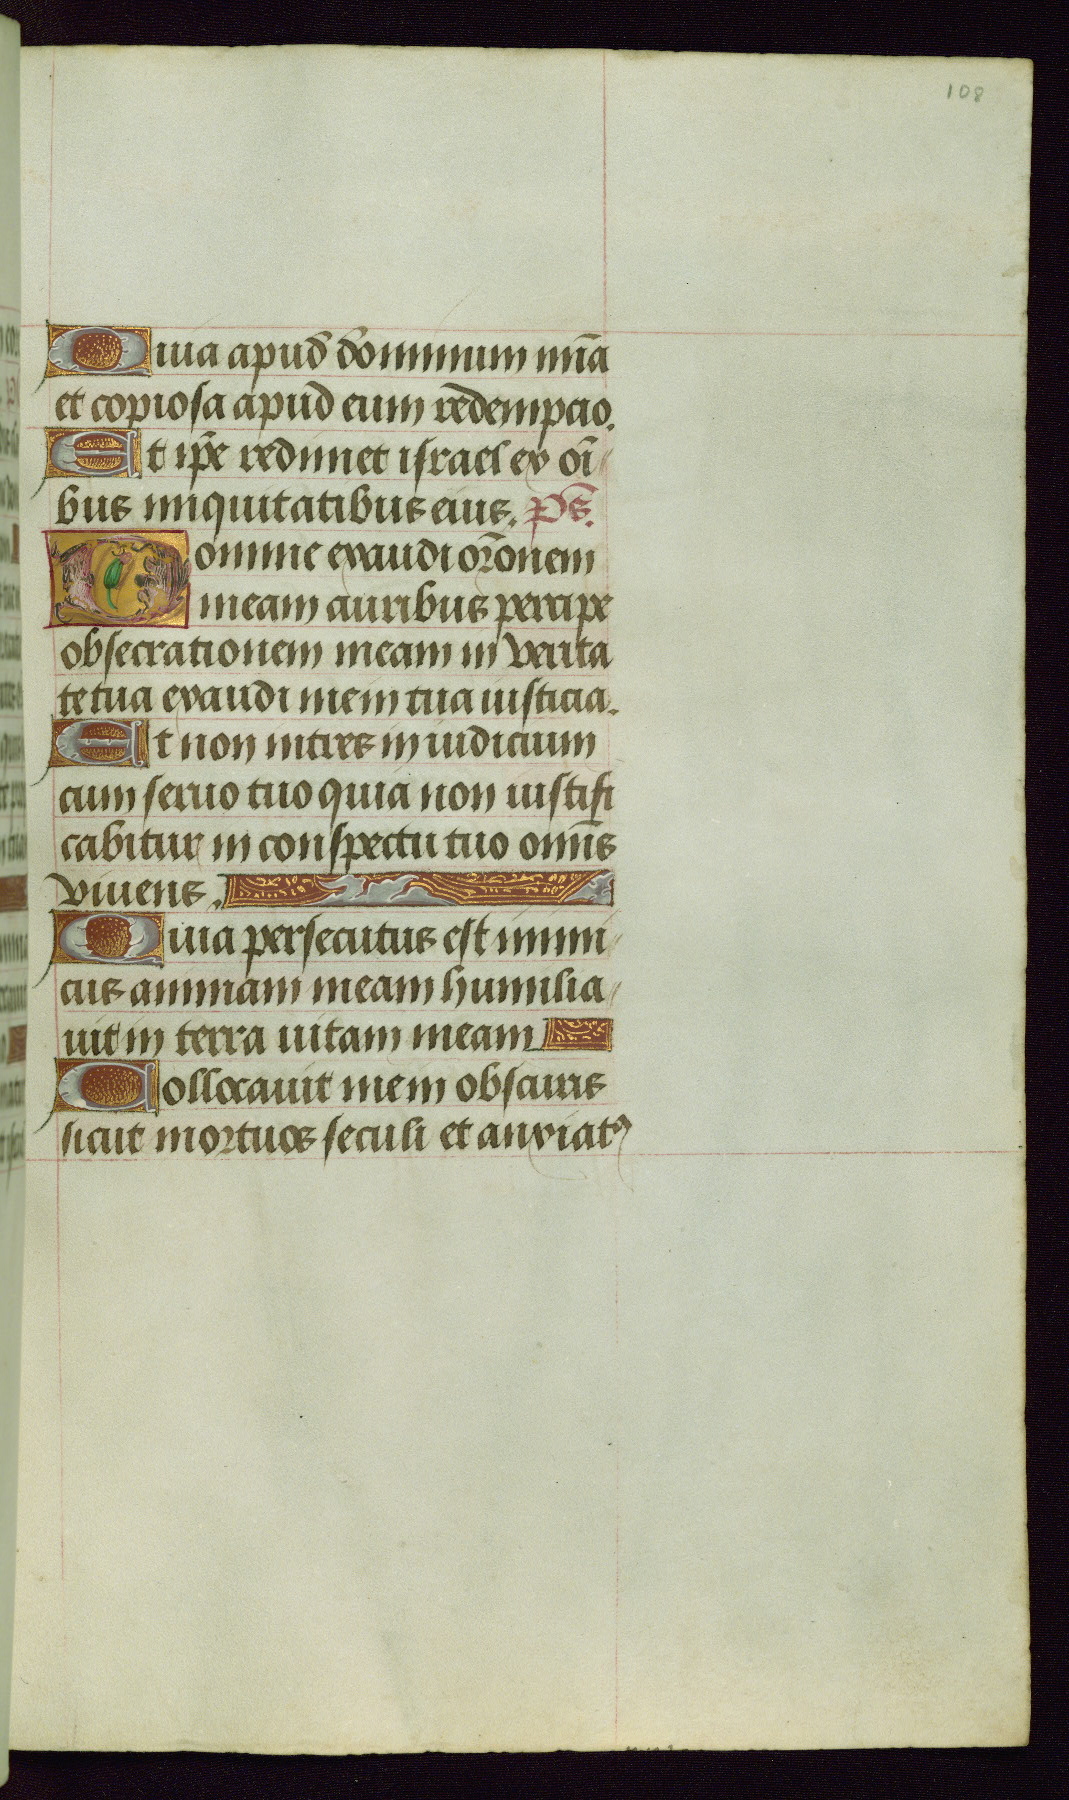 108
Quia apud dominum mĩa
et copiosa apud eum redempcio.
Et ip̃e redimet israel ex oĩ
bus iniquitatibus eius. Ps̃.
Domine exaudi or̃onem
meam auribus percipe
obsecrationem meam in verita
te tua exaudi mein tua iusticia.
Et non intres in iudicium
cum seruo tuo quia non iustifi
cabitur in conspectu tuo omñis
viuens.
Quia persecutus est inimi
cus animam meam humilia
uit in terra uitam meam
Collocauit mein obscuris
sicut mortuos seculi et anxiatꝰ